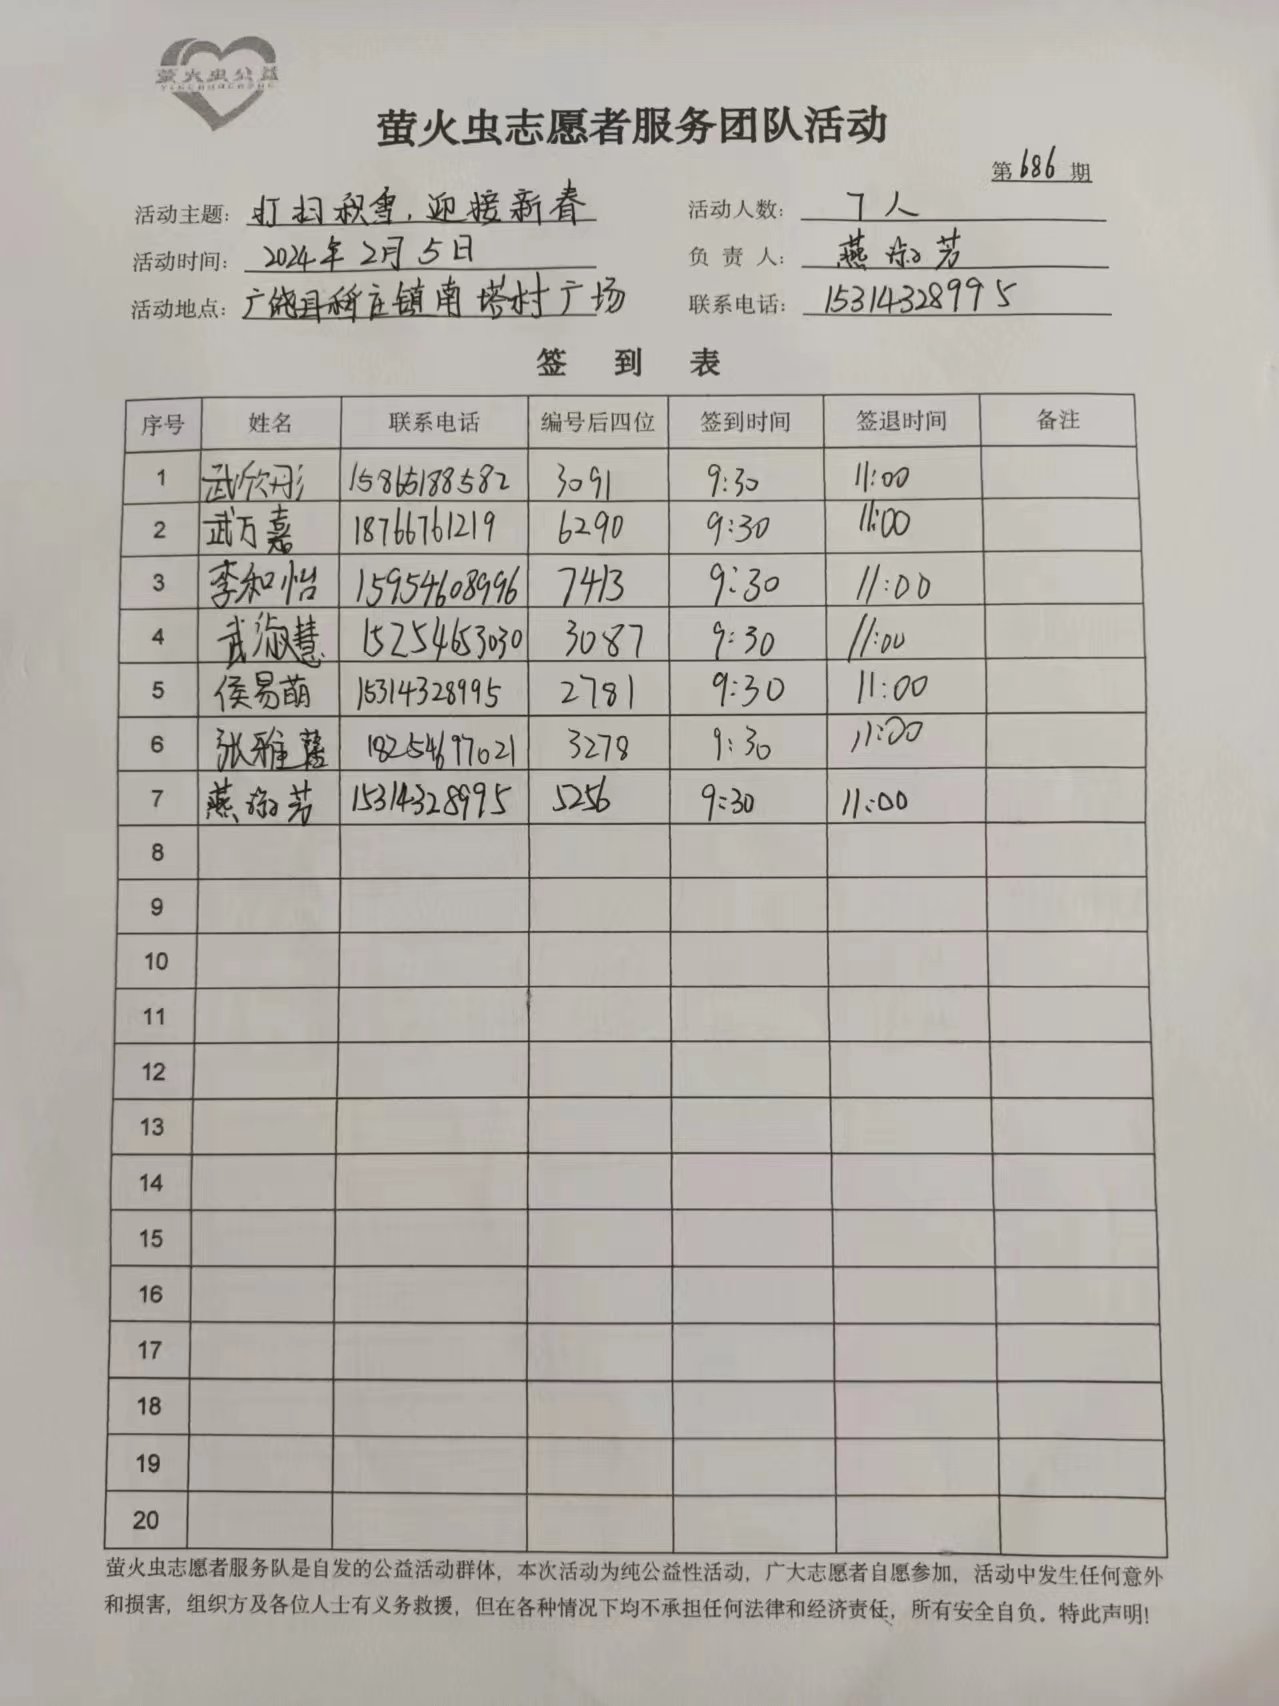 萤火虫公益
萤火虫志愿者服务团队活动
第686期
活动主题：打扫积雪，迎接新春 活动人数：7人
活动时间：2024年2月5日 负责人：燕淑芳
活动地点：广饶县稻庄镇南塔村广场 联系电话：15314328995
签 到 表
序号 姓名 联系电话 编号后四位 签到时间 签退时间 备注
1 武欣彤 15865188582 3091 9:30 11:00
2 武万嘉 18766761219 6290 9:30 11:00
3 李和怡 15954608996 7413 9:30 11:00
4 武淑慧 15254653030 3087 9:30 11:00
5 侯易萌 15314328995 2781 9:30 11:00
6 张雅 18254697021 3278 9:30 11:00
7 燕淑芳 15314328995 5256 9:30 11:00
8
9
10
11
12
13
14
15
16
17
18
19
20
萤火虫志愿者服务队是自发的公益活动群体，本次活动为纯公益性活动，广大志愿者自愿参加，活动中发生任何意外
和损害，组织方及各位人士有义务救援，但在各种情况下均不承担任何法律和经济责任，所有安全自负。特此声明！